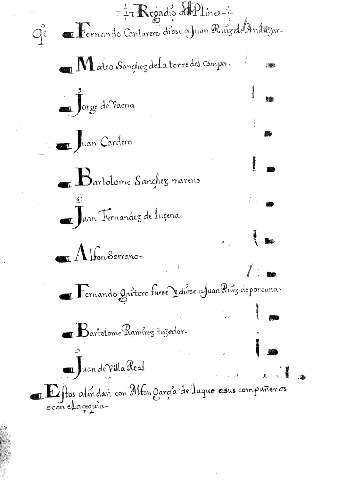 Regadio del
Fernando Cantarero diose a Juan Ruiz de Andujar
Mateo Sanchez de la torre del campo.
Jorge de Vaena
Juan Cardero
Bartolome Sanchez moreno
Juan Fernandez de luçena
Alfon Serrano
Fernando fuese y diose a Juan Ruiz de porcuna
Bartolome Ramirez texedor
Juan de Villa Real
Estos alindan con Alfon garçia de luque e sus compañeros
e con el açequia